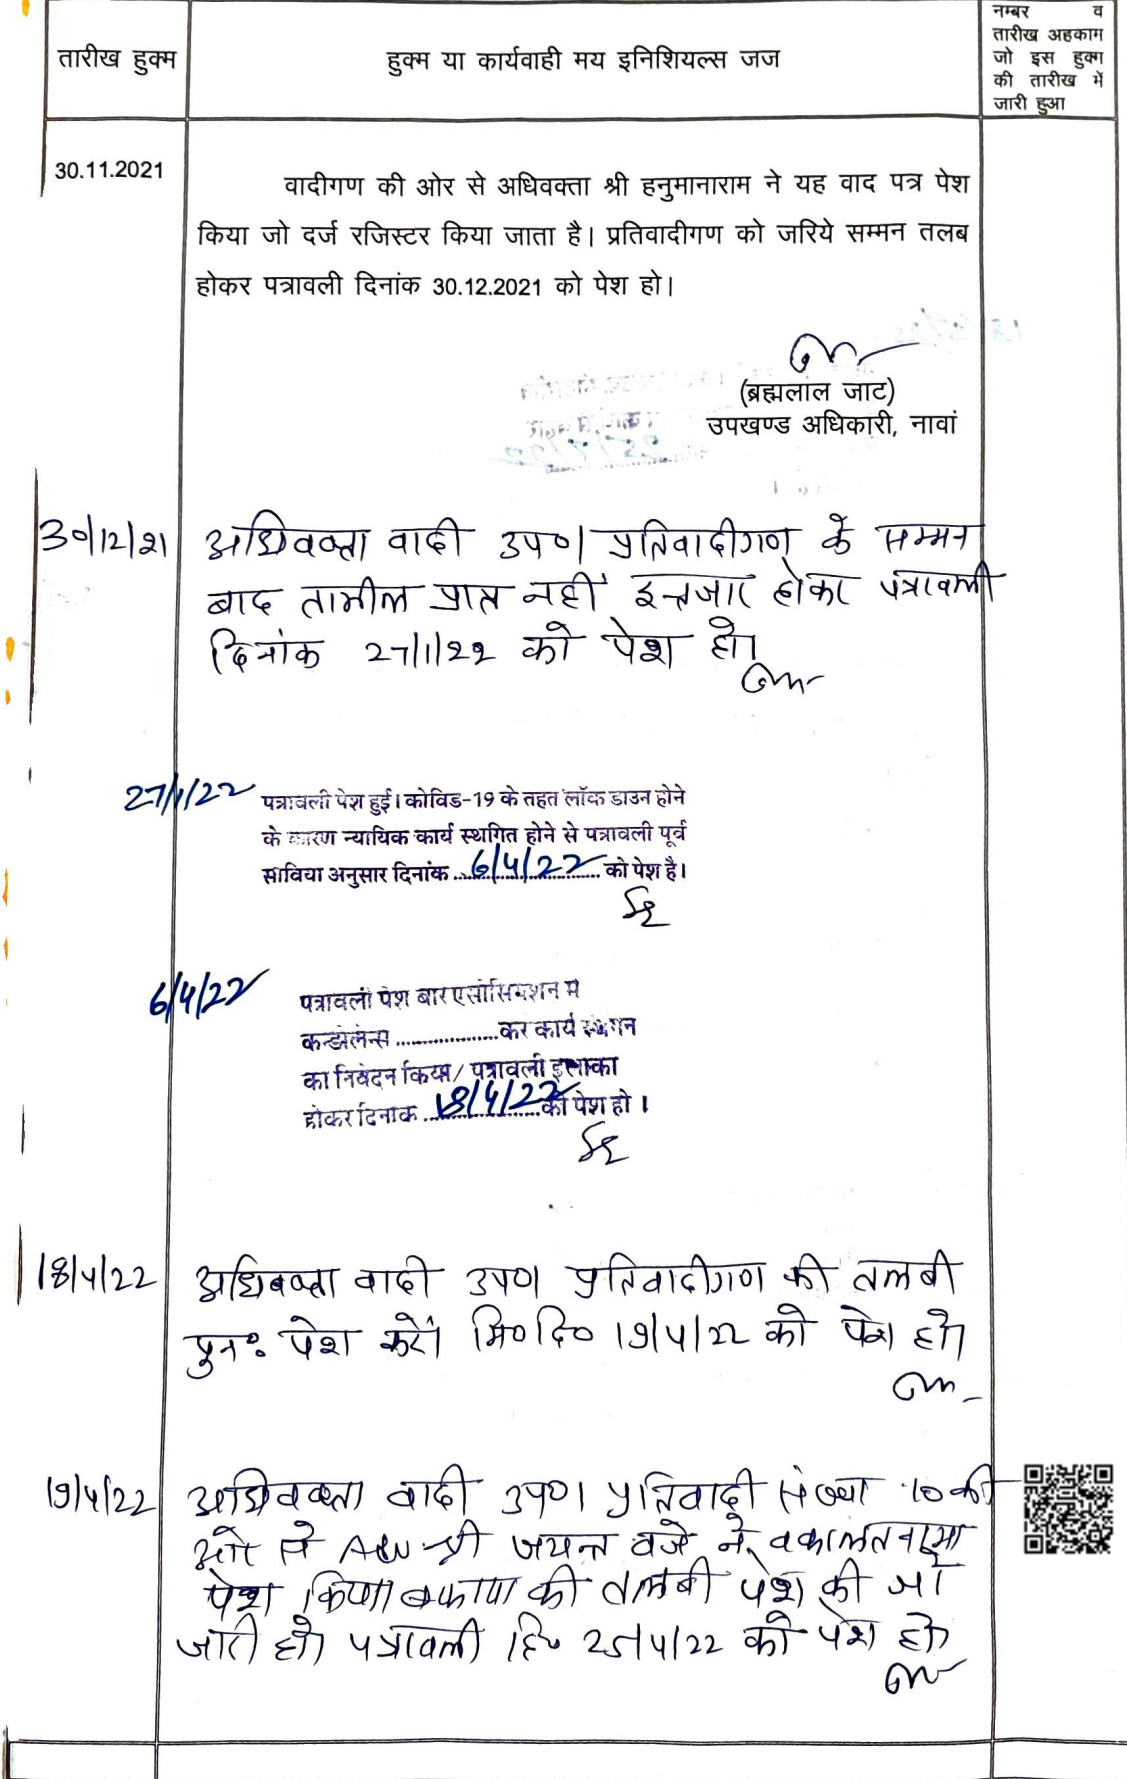 तारीख हुक्म
हुक्म या कार्यवाही मय इनिशियल्स जज
नम्बर व
तारीख अहकाम
जो इस हुक्म
की तारीख में
जारी हुआ
30.11.2021
वादीगण की ओर से अधिवक्ता श्री हनुमानाराम ने यह वाद पत्र पेश
किया जो दर्ज रजिस्टर किया जाता है। प्रतिवादीगण को जरिये सम्मन तलब
होकर पत्रावली दिनांक 30.12.2021 को पेश हो।
(ब्रह्मलाल जाट)
उपखण्ड अधिकारी, नावां
30/12/21 अधिवक्ता वादी उप०। प्रतिवादीगण के सम्मन
बाद तामील प्राप्त नहीं इन्तजार होकर पत्रावली
दिनांक 27/1/22 को पेश हो।
27/1/22 पत्रावली पेश हुई। कोविड-19 के तहत लॉक डाउन होने
के कारण न्यायिक कार्य स्थगित होने से पत्रावली पूर्व
अनुसार दिनांक 6/4/22 को पेश है।
6/4/22 पत्रावली पेश बार एसोसियशन मे
कन्डोलेन्स .................. कर कार्य स्थगन
का निवेदन किया / पत्रावली
होकर दिनाक 18/4/22 को पेश हो ।
18/4/22 अधिवक्ता वादी उप०। प्रतिवादीगण की तलबी
पुनः पेश करें। मि० दि० 19/4/22 को पेश हो।
19/4/22 अधिवक्ता वादी उप०। प्रतिवादी संख्या 10 की
ओर से Adv श्री जयन्त ने वकालतनामा
पेश किया। बकाया की तलबी पेश की
जाती हो। पत्रावली दि० 25/4/22 को पेश हो